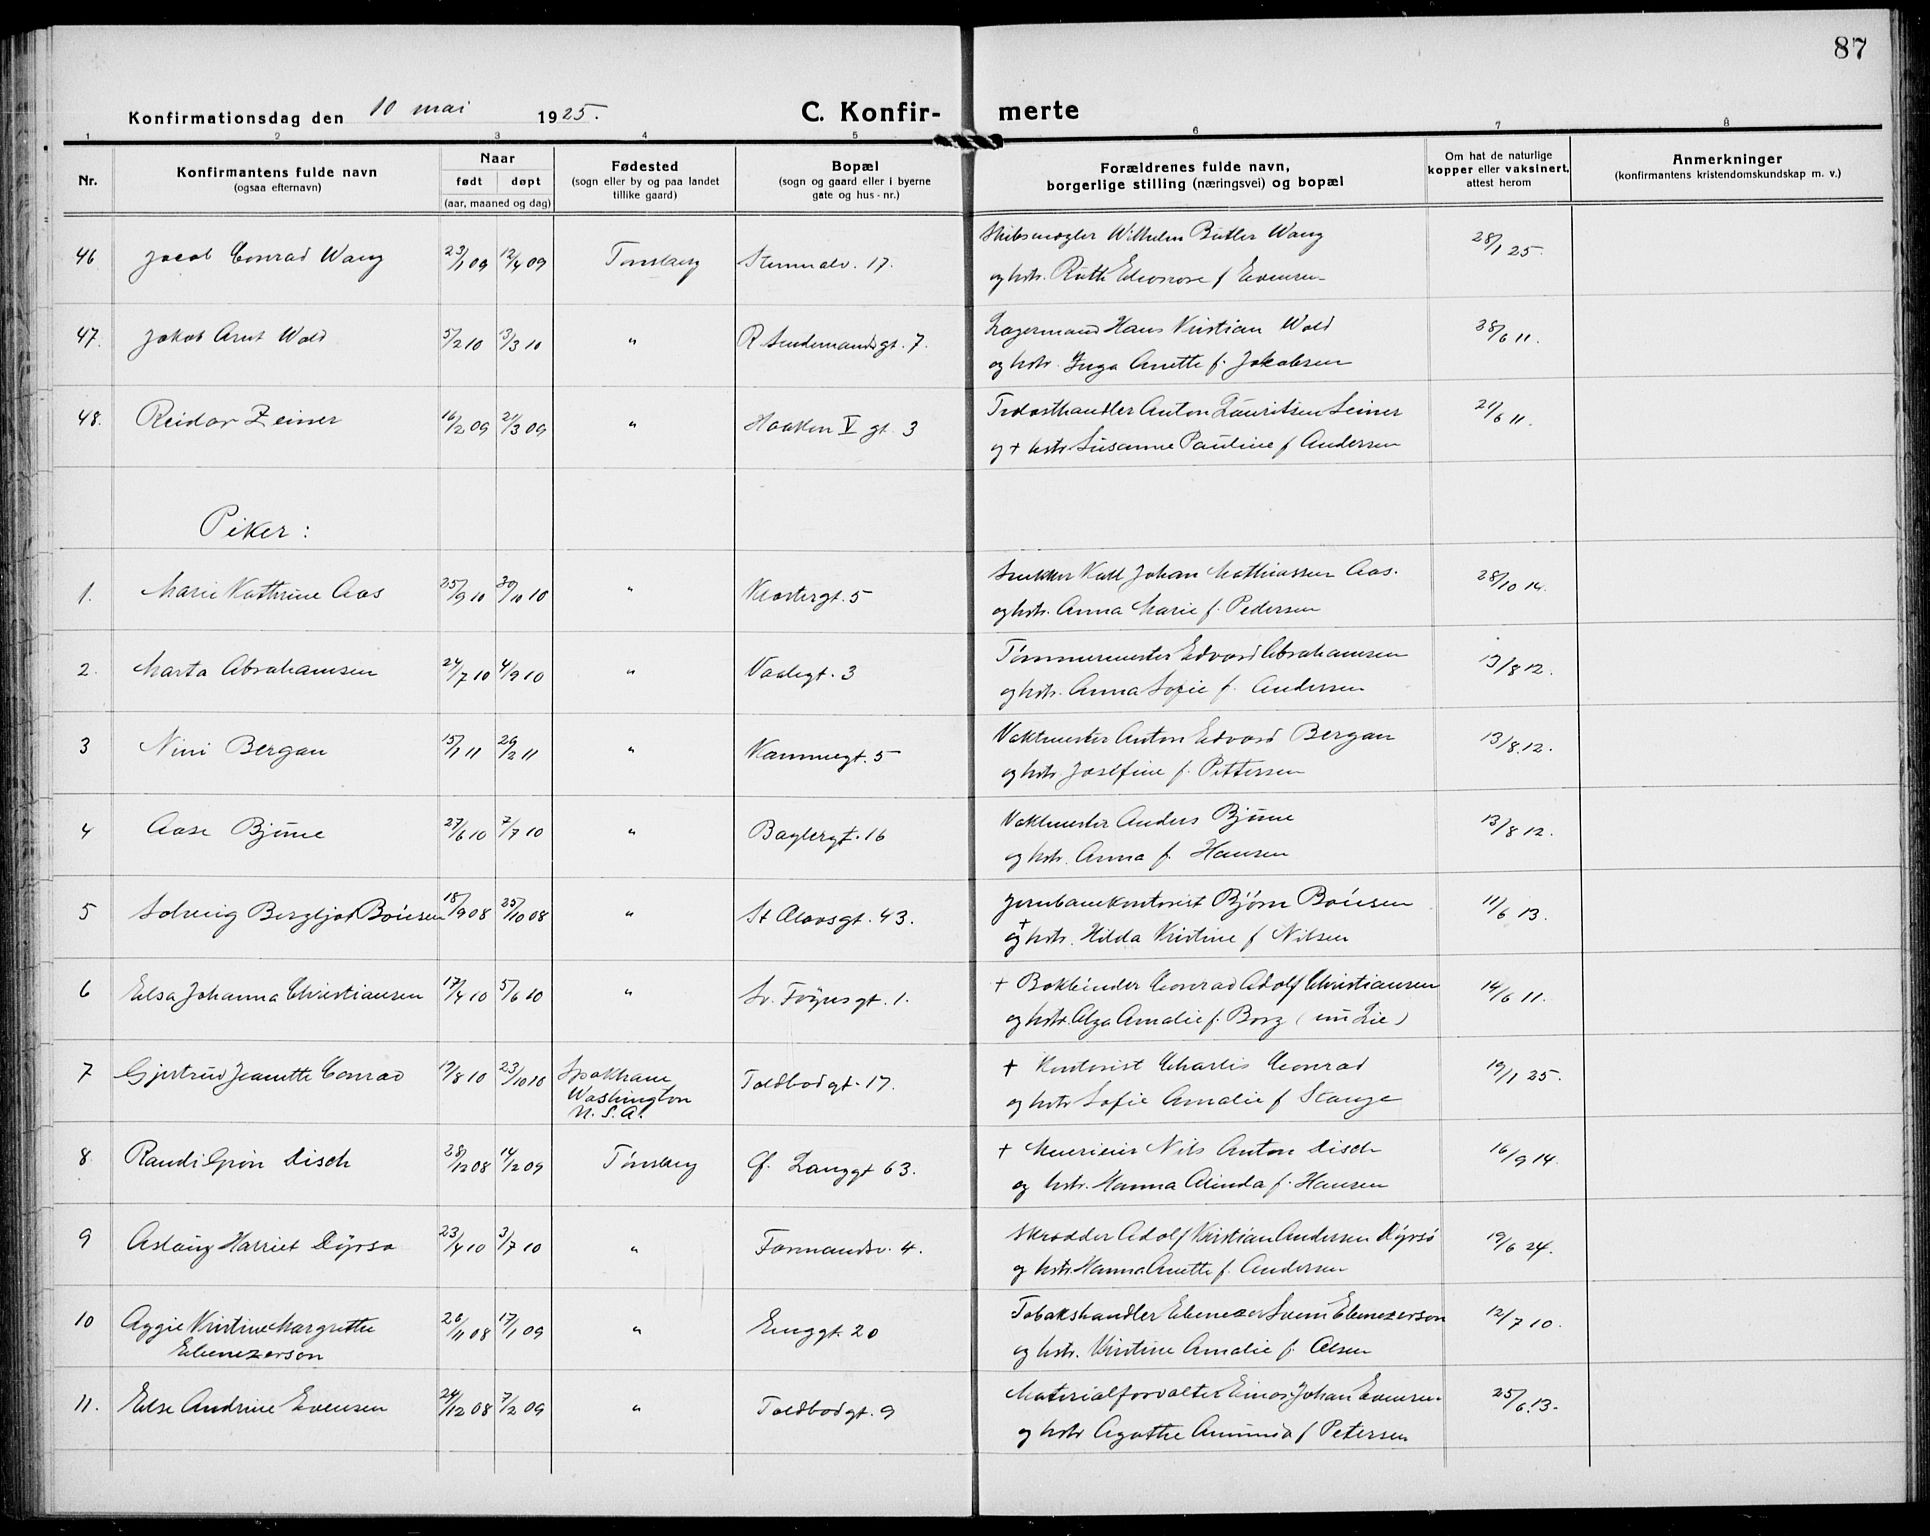 87
Konfirmationsdag den 10 mai 1925.
C. Konfir- merte
1 2 3 4 5 6 7 8
Nr.
Konfirmantens fulde navn
(ogsaa efternavn)
Naar
født døpt
(aar, maaned og dag)
Fødested
(sogn eller by og paa landet
tillike gaard)
Bopæl
(sogn og gaard eller i byerne
gate og hus-nr.)
Forældrenes fulde navn,
borgerlige stilling (næringsvei) og bopæl
Om hat de naturlige
kopper eller vaksinert,
attest herom
Anmerkninger
(konfirmantens kristendomskundskap m. v.)
46 Jacob Conrad Wang 23/1 09 12/4 09 Tønsberg 17. Skibsmægler Wilhelm Butler Wang 28/1 25.
og hstr. Ruth Eleonore f Evensen
47. Jakob Arnt Wold 5/2 10 13/3 10 " R. Sendemandsgt. 7. Lagermand Hans Kristian Wold 28/6 11.
og hstr. Inga Anette f. Jakobsen
48. Reidar Zeiner 16/2 09 21/3 09 " Haakon V gt. 3 Anton Lauritsen Seiner 21/6 11.
og + hstr. Susanne Pauline f Andersen
Piker:
1. Marie Kathrine Aas 25/9 10 30/10 10 " Klostergt. 5 Snekker Karl Johan Mathiassen Aas. 28/10 14.
og hstr. Anna Marie f. Pedersen
2. Marta Abrahamsen 24/7 10 4/9 10 " Vaalegt. 3 Tømmermester Edvard Abrahamsen 13/8 12.
og hstr. Anna Sofie f. Andersen
3 Nini Bergan 15/1 11 26/2 11 " Kammegt. 5 Vaktmester Anton Edvard Bergan 13/8. 12.
og hstr. Josefine f. Pettersen
4 Aase Bjune 27/6 10 7/7 10 " Baglergt. 16 Vaktmester Anders Bjune 13/8 12.
og hstr. Anna f. Hansen
5 Solveig Bergljot Boiesen 18/9 08 25/10 08 " St Olavsgt. 43. Jernbanekontorist Bjørn Boiesen 11/6 13.
+ og hstr. Hilda Kristine f Nilsen
6 Elsa Johanna Christiansen 17/4 10 5/6 10 " Sv. Foynsgt. 1. + Bokbinder Conrad Adolf Christiansen 14/6 11.
og hstr. Alga Amalie f. Borg (nu Lie)
7 Gjertrud Jeanette Conrad 19/8 10 23/10 10 Spokhane Toldbodgt. 17. + Kontorist Charlis Conrad 19/1 25.
Washington
U. S. A.
og hstr Sofie Amalie f Stange
8. Randi Grøn Disch 28/12 08 14/2 09 Tønsberg Ø. Langgt 63. + Meierieier Nils Anton Disch 16/9 14.
og hstr. Hanna Alinda f. Hansen
9 Aslaug Harriet Dyrsø 23/4 10 3/7 10 " Formandsv. 4. Skrædder Adolf Kristian Andersen Dyrsø 19/6 24.
og hstr. Hanna Anette f. Andersen
10 Aggie Kristine Margrethe 26/11 08 17/1 09 " Enggt. 20 Tobakshandler Ebenezer Svein Ebenezerson 12/7 10.
Ebenezerson
og hstr. Kristine Amalie f. Olsen
11. Else Andrine Evensen 24/12 08 7/2 09 " Toldbodgt. 9 Materialforvalter Einar Johan Evensen. 25/6. 13.
og hstr Agathe Amunda f Petersen